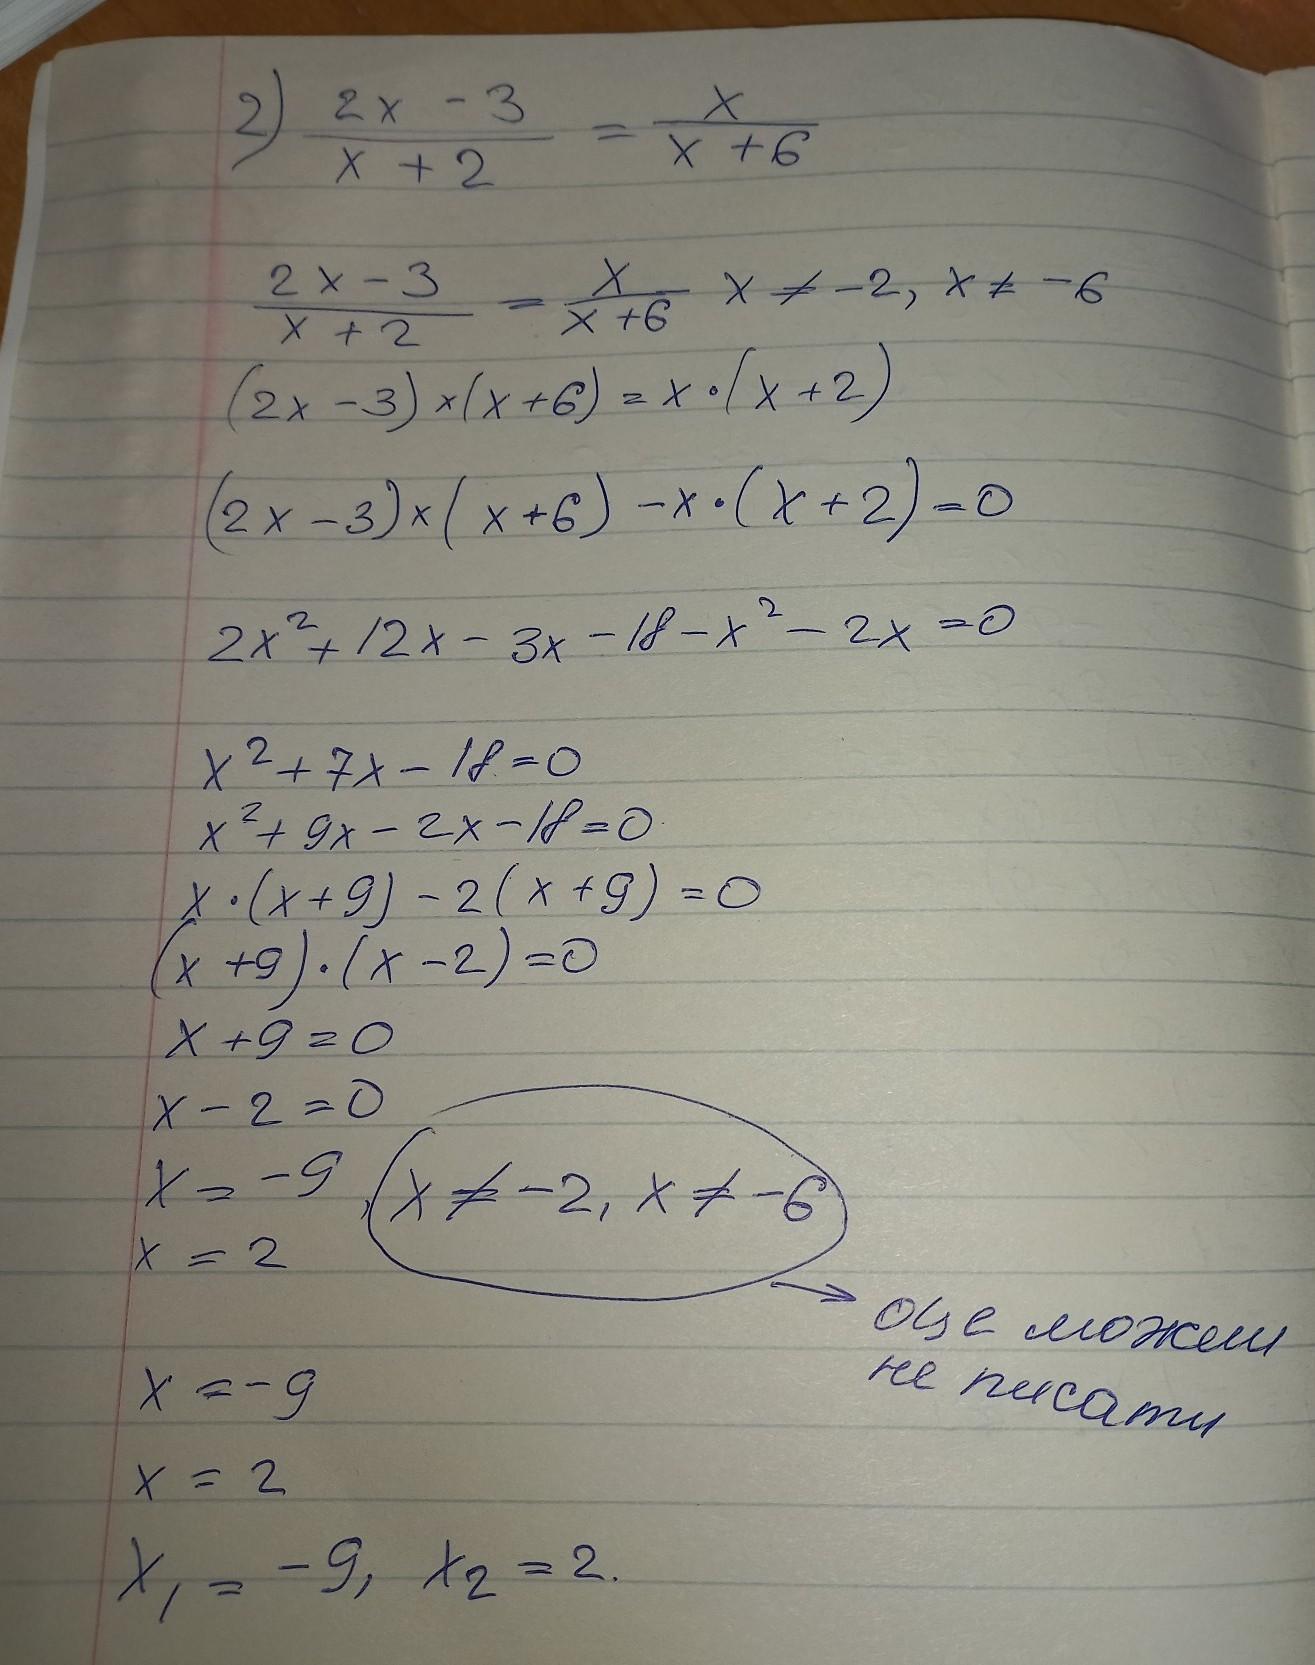 2) (2x - 3)/(x + 2) = x/(x + 6)
(2x - 3)/(x + 2) = x/(x + 6) x ≠ -2, x ≠ -6
(2x - 3) × (x + 6) = x · (x + 2)
(2x - 3) × (x + 6) - x · (x + 2) = 0
2x² + 12x - 3x - 18 - x² - 2x = 0
x² + 7x - 18 = 0
x² + 9x - 2x - 18 = 0
x · (x + 9) - 2(x + 9) = 0
(x + 9) · (x - 2) = 0
x + 9 = 0
x - 2 = 0
x = -9, x ≠ -2, x ≠ -6
x = 2
→ оце можеш
не писати
x = -9
x = 2
x₁ = -9, x₂ = 2.